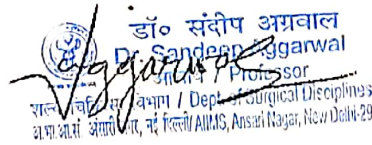 डॉ० संदीप अग्रवाल
Dr. Sandeep Aggarwal
/ Professor
विभाग / Dept. of Surgical Disciplines
अ.भा.आ.सं. अंसारी नगर, नई दिल्ली/AIIMS, Ansari Nagar, New Delhi-29